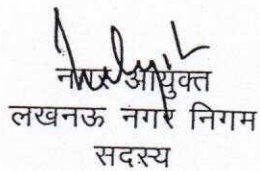 नगर आयुक्त
लखनऊ नगर निगम
सदस्य